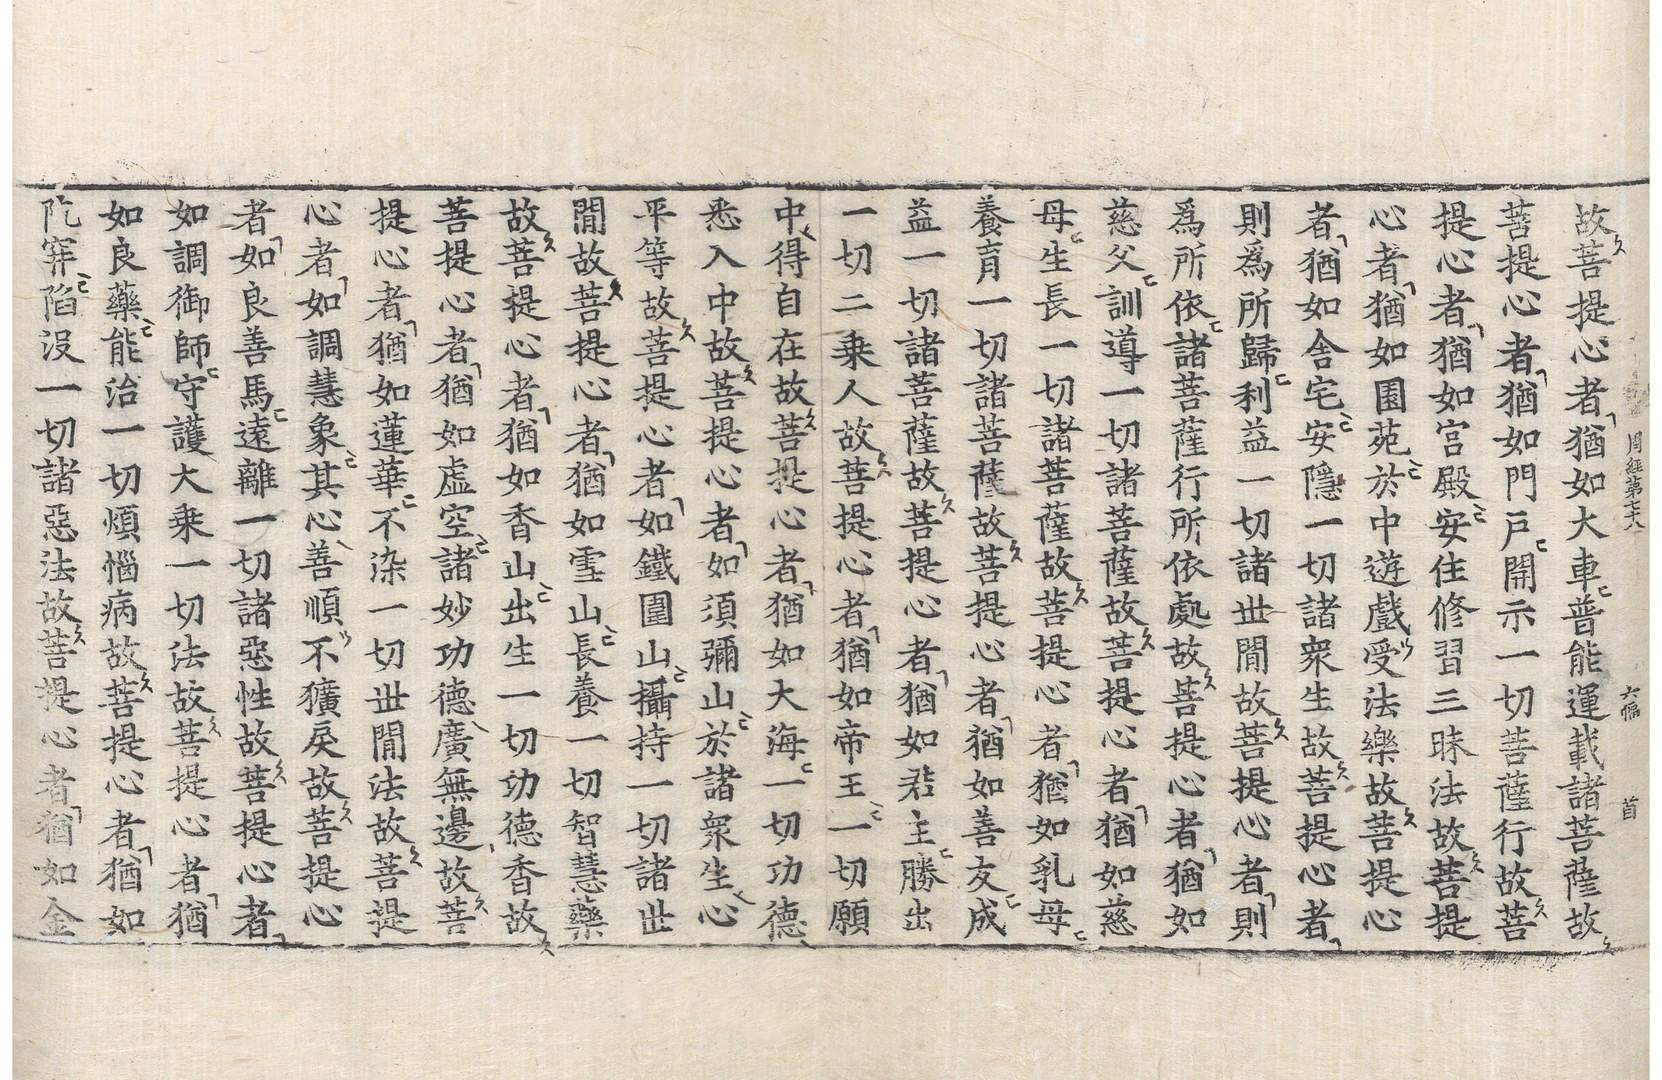 周經第七十八 六幅 首
故菩提心者猶如大車普能運載諸菩薩故
菩提心者猶如門戶開示一切菩薩行故菩
提心者猶如宮殿安住修習三昧法故菩提
心者猶如園苑於中遊戲受法樂故菩提心
者猶如舍宅安隱一切諸衆生故菩提心者
則爲所歸利益一切諸世閒故菩提心者則
爲所依諸菩薩行所依處故菩提心者猶如
慈父訓導一切諸菩薩故菩提心者猶如慈
母生長一切諸菩薩故菩提心者猶如乳母
養育一切諸菩薩故菩提心者猶如善友成
益一切諸菩薩故菩提心者猶如君主勝出
一切二乘人故菩提心者猶如帝王一切願
中得自在故菩提心者猶如大海一切功德
悉入中故菩提心者如須彌山於諸衆生心
平等故菩提心者如鐵圍山攝持一切諸世
閒故菩提心者猶如雪山長養一切智慧藥
故菩提心者猶如香山出生一切功德香故
菩提心者猶如虛空諸妙功德廣無邊故菩
提心者猶如蓮華不染一切世閒法故菩提
心者如調慧象其心善順不獷戾故菩提心
者如良善馬遠離一切諸惡性故菩提心者
如調御師守護大乘一切法故菩提心者猶
如良藥能治一切煩惱病故菩提心者猶如
阬穽陷沒一切諸惡法故菩提心者猶如金